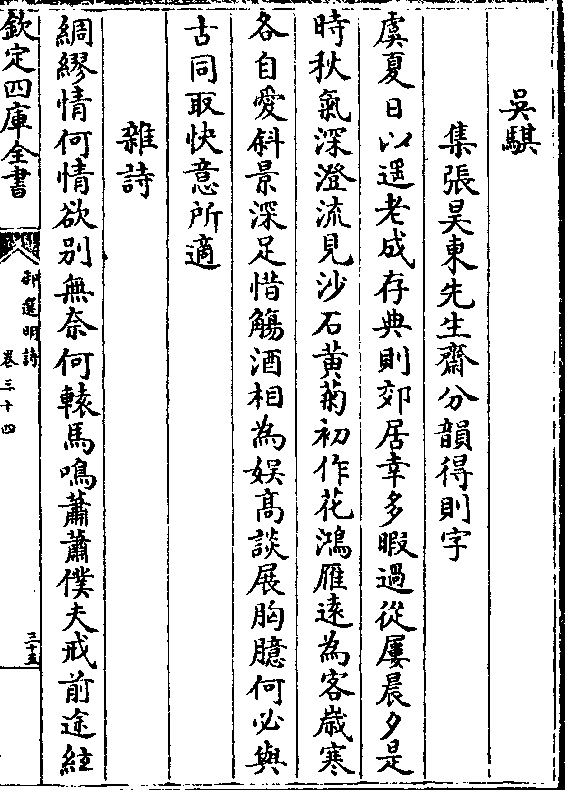 吳騏
集張昊東先生齋分韻得則字
虞夏日以遥老成存典則郊居幸多暇過從屢晨夕是
時秋氣深澄流見沙石黄菊初作花鴻雁逺為客嵗寒
各自愛斜景深足惜觴酒相為娱髙談展胸臆何必與
古同取快意所適
雜詩
綢繆情何情欲别無奈何轅馬鳴蕭蕭僕夫戒前途
欽定四庫全書
御選明詩
卷三十四
三十五